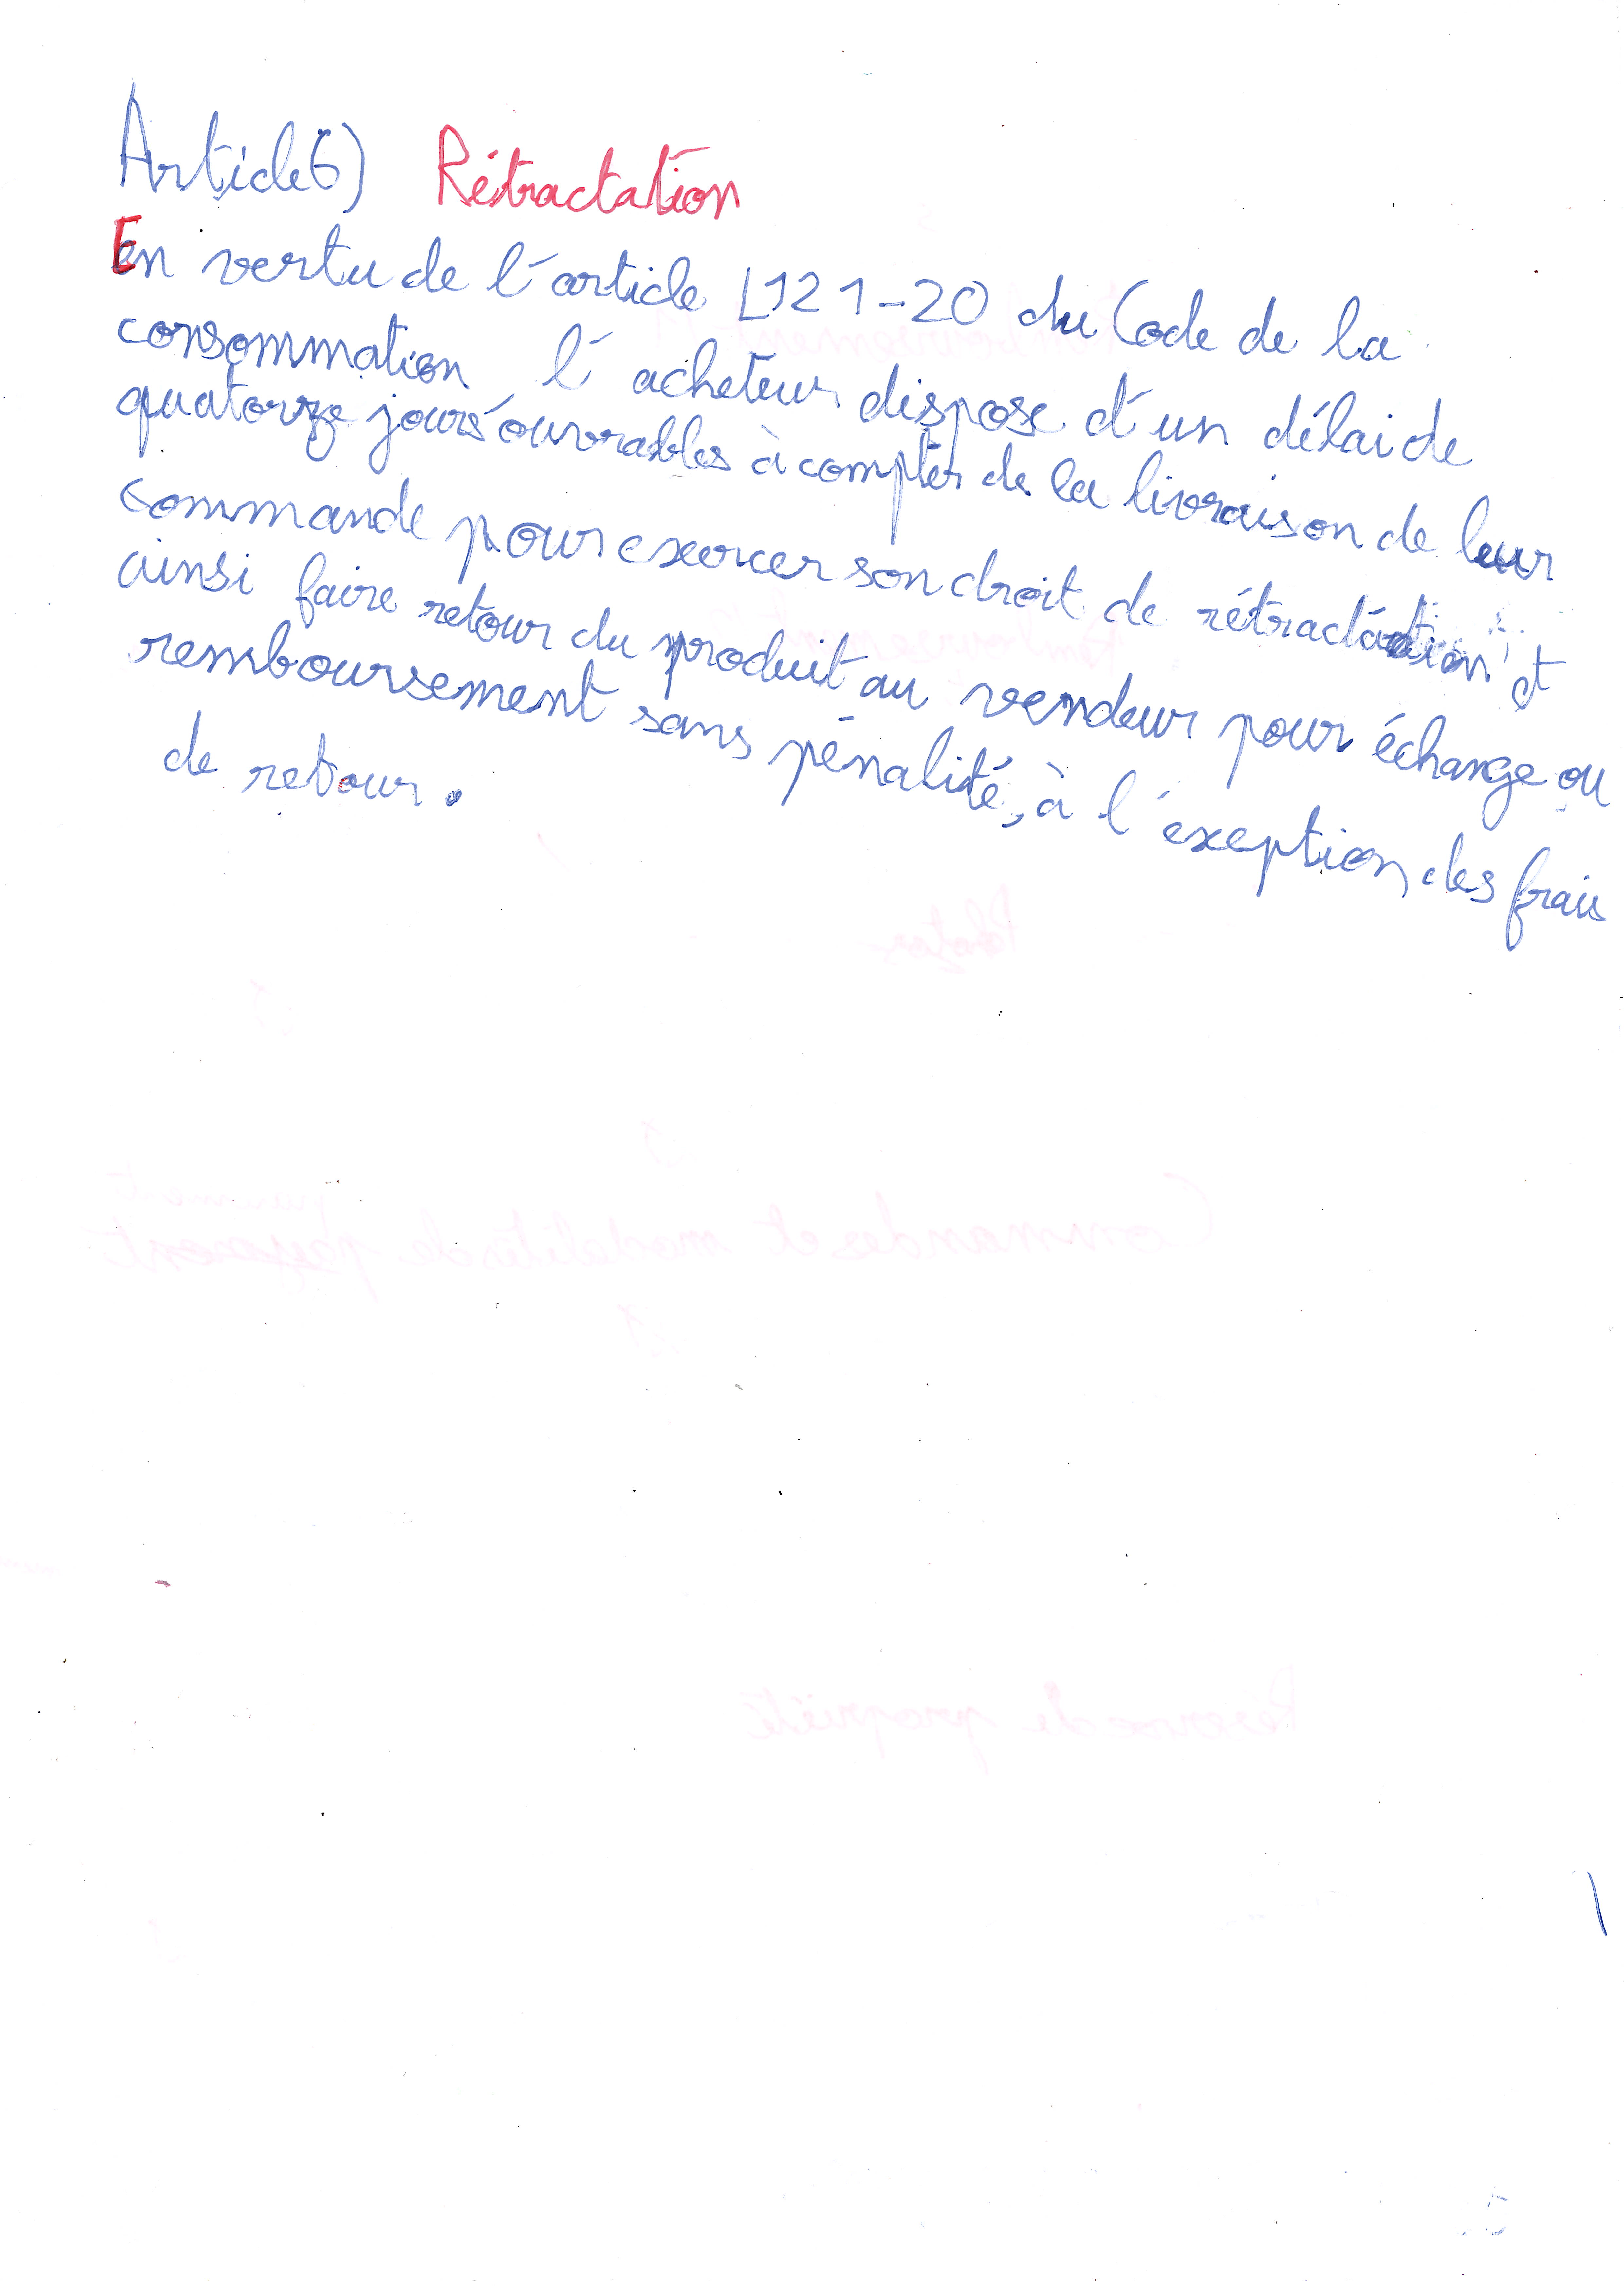 Article 6) Rétractation
En vertu de l'article L121-20 du Code de la
consommation l'acheteur dispose d'un délai de
quatorze jours ouvrables à compter de la livraison de leur
commande pour exercer son droit de rétractation et
ainsi faire retour du produit au vendeur pour échange ou
remboursement sans pénalité, à l'exeption des frais
de retour.